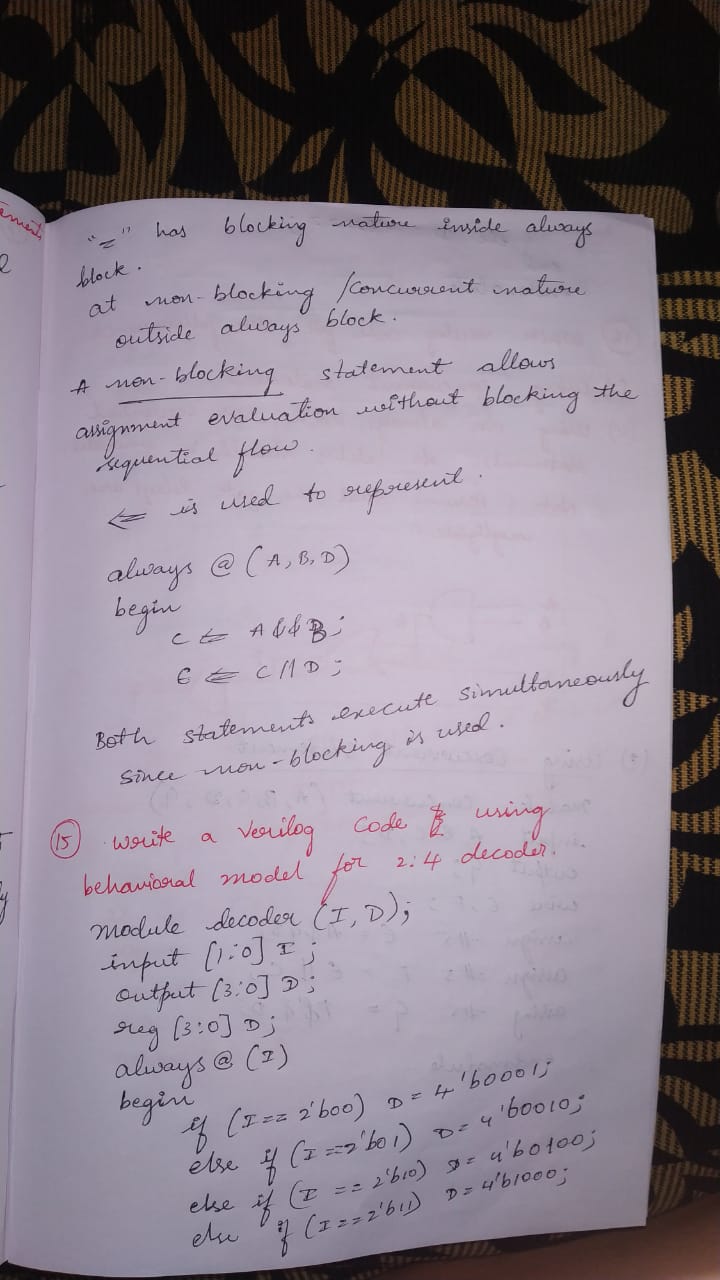 "=" has blocking nature inside always
block.
at non-blocking /concurrent nature
outside always block.
A non-blocking statement allows
assignment evaluation without blocking the
sequential flow.
<= is used to represent.
always @ (A, B, D)
begin
C <= A && B;
E <= C || D;
Both statements execute simultaneously
since non-blocking is used.
15 write a Verilog code using
behavioral model for 2:4 decoder.
module decoder (I, D);
input [1:0] I;
output [3:0] D;
reg [3:0] D;
always @ (I)
begin
if (I == 2'b00) D = 4'b0001;
else if (I == 2'b01) D = 4'b0010;
else if (I == 2'b10) D = 4'b0100;
else if (I == 2'b11) D = 4'b1000;